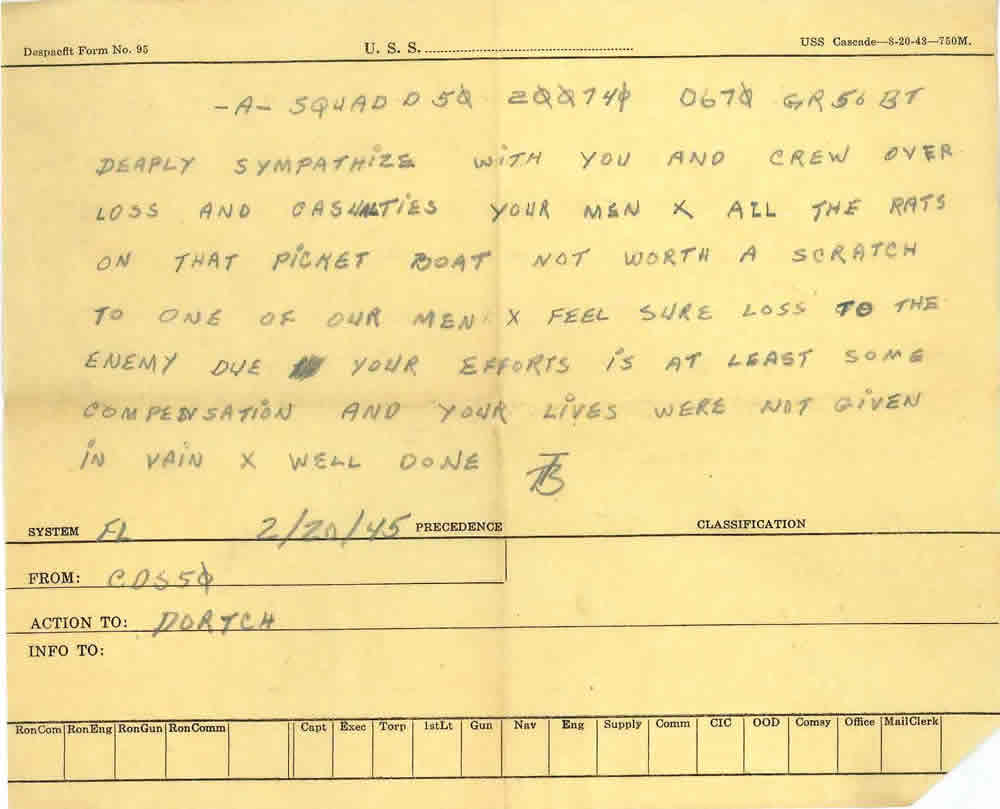 Despacfit Form No. 95 U. S. S. USS Cascade—8-20-43—750M.
-A- SQUAD D 50 200740 0670 GR 56 BT
DEAPLY SYMPATHIZE WITH YOU AND CREW OVER
LOSS AND CASUALTIES YOUR MEN X ALL THE RATS
ON THAT PICKET BOAT NOT WORTH A SCRATCH
TO ONE OF OUR MEN X FEEL SURE LOSS TO THE
ENEMY DUE YOUR EFFORTS IS AT LEAST SOME
COMPENSATION AND YOUR LIVES WERE NOT GIVEN
IN VAIN X WELL DONE
SYSTEM FL 2/20/45 PRECEDENCE CLASSIFICATION
FROM: CDS50
ACTION TO: DORTCH
INFO TO:
RonCom RonEng RonGun RonComm Capt Exec Torp 1stLt Gun Nav Eng Supply Comm CIC OOD Comsy Office MailClerk